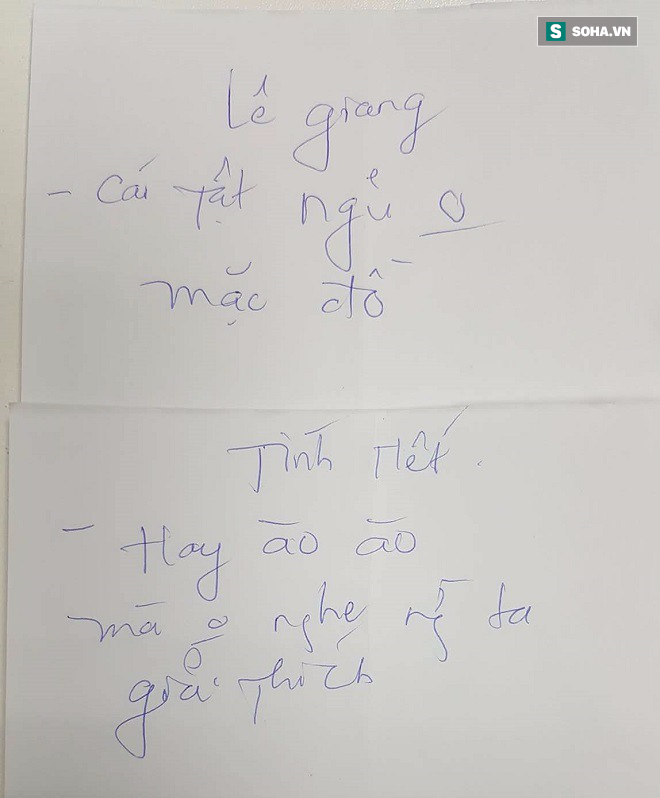 SOHA.VN
Lê giang
- Cái tật ngủ o
mặc đồ
Tính Nết.
- Hay ào ào
mà o nghe ng ta
giải thích